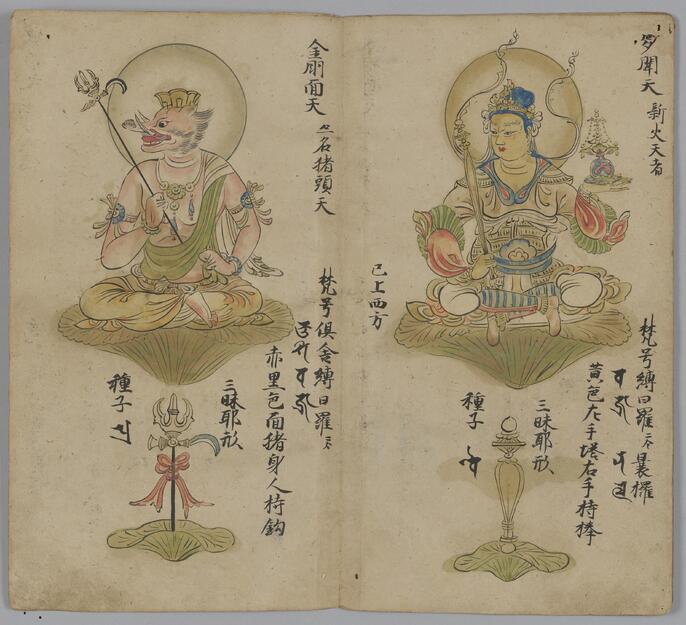 多聞天 新火天者
梵号縛曰羅
黄色左手塔右手持棒
三昧耶形
種子
已上西方
金剛面天 亦名猪頭天
梵号俱舍縛日羅
赤黒色面猪身人持鈎
三昧耶形
種子